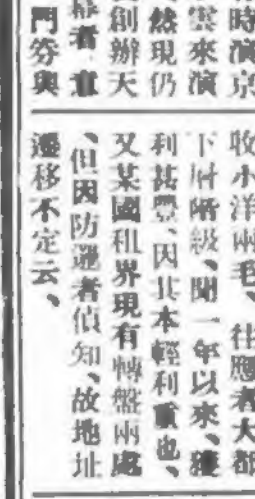 時演京
雲來演
然現仍
創辦天
幕者、車
門券與
收小洋兩毛、往應者大都
下層階級、聞一年以來、獲
利甚豐、因其本輕利重也、
又某國租界現有轉盤兩處
、但因防邏者偵知、故地址
遷移不定云、